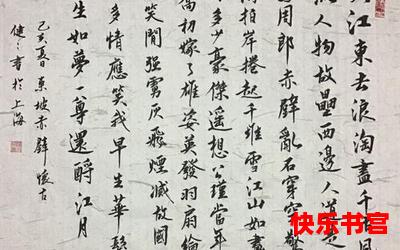 江東去浪淘盡千古
人物故壘西邊人道是
周郎赤壁亂石穿空驚
拍岸捲起千堆雪江山如畫
多少豪傑遥想公瑾當年
喬初嫁了雄姿英發羽扇綸
笑間强虜灰飛煙滅故國
多情應笑我早生華髮
生如夢一尊還酹江月
己亥春東坡赤壁懷古
健之書於上海
快乐书宫